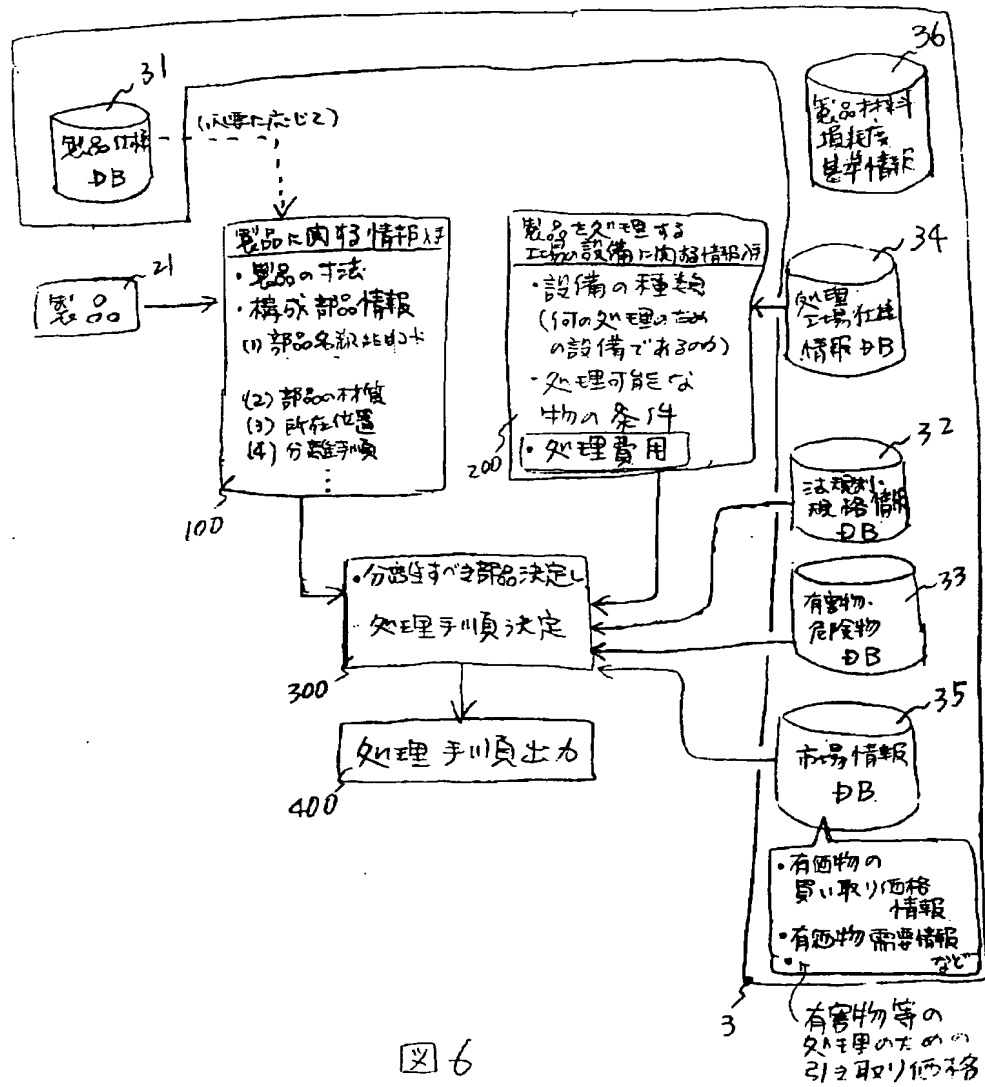 31
製品仕様
DB
(必要に応じて)
36
製品材料
損耗度
基準情報
21
製品
製品に関する情報入手
・製品の寸法
・構成部品情報
(1) 部品名称
(2) 部品の材質
(3) 所在位置
(4) 分離手順
⋮
100
製品を処理する
工場の設備に関する情報入手
・設備の種類
(何の処理のため
の設備であるのか)
・処理可能な
物の条件
・処理費用
200
34
処理
工場仕様
情報DB
32
法規制・
規格情報
DB
33
有害物・
危険物
DB
・分離すべき部品決定し
処理手順決定
300
処理手順出力
400
35
市場情報
DB
・有価物の
買い取り価格
情報
・有価物需要情報
・ など
3
有害物等の
処理のための
引き取り価格
図6